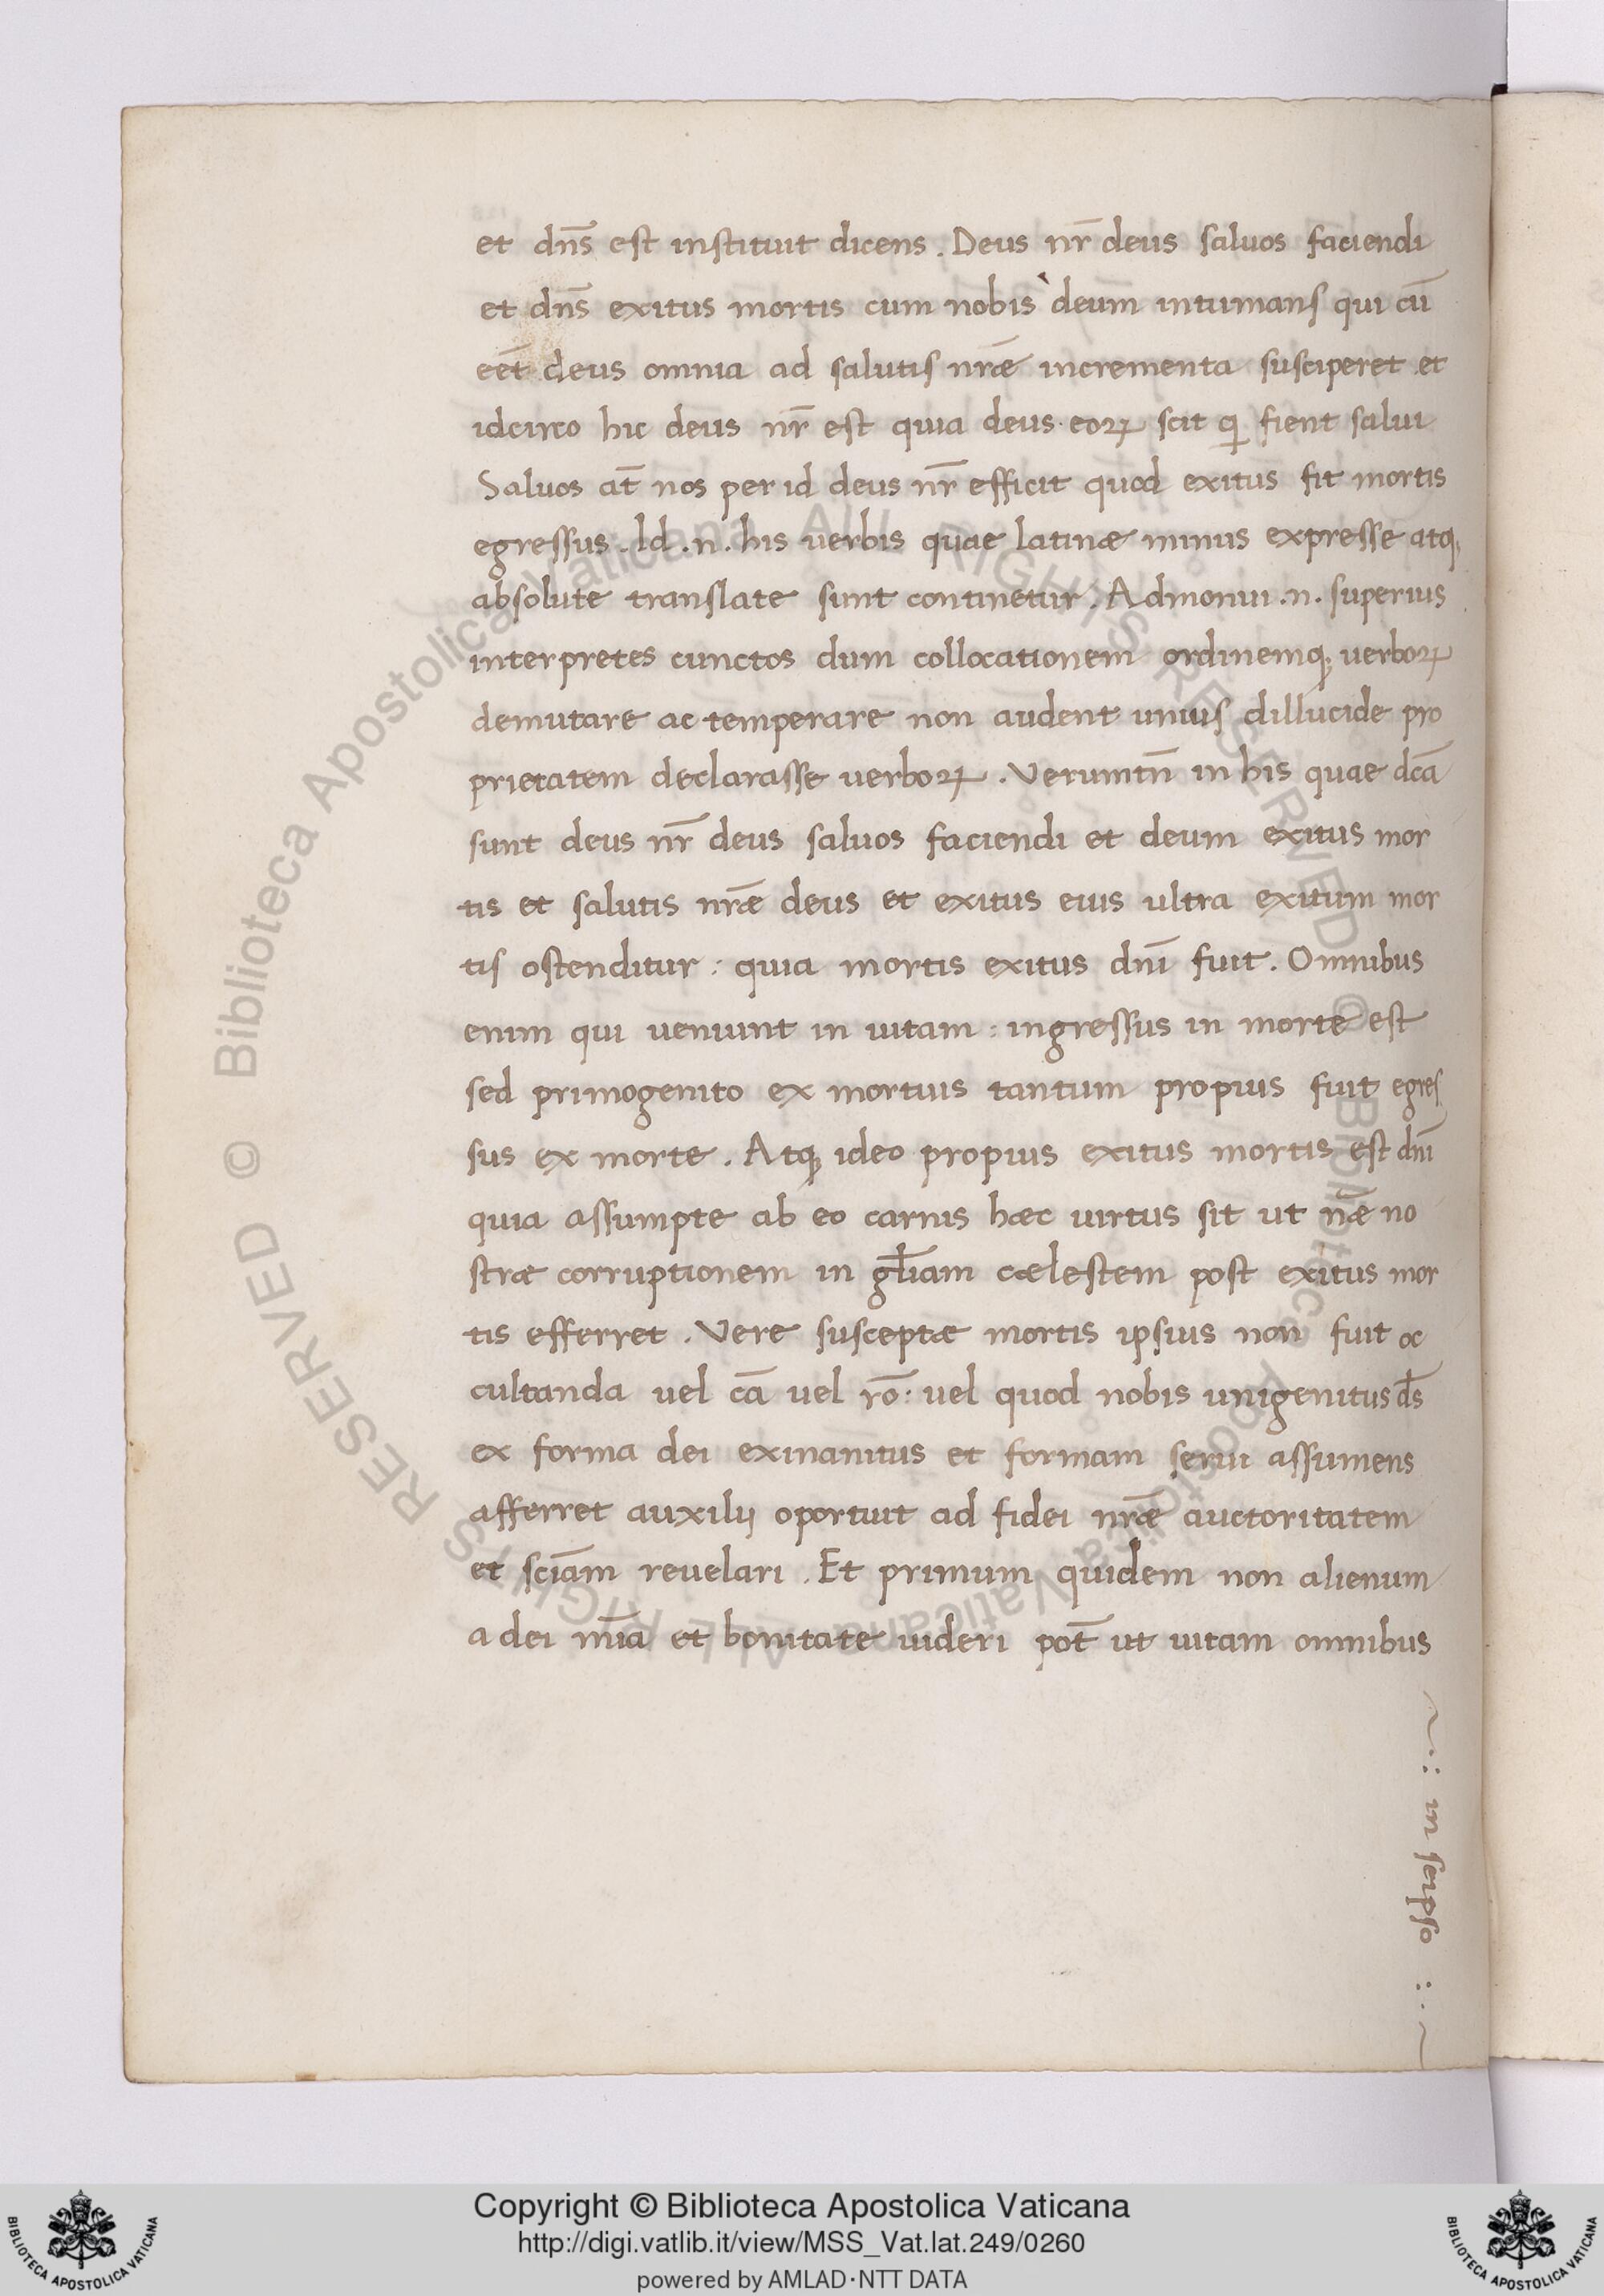 et dn̄s est instituit dicens. Deus nr̄ deus saluos faciendi
et dn̄s exitus mortis cum nobis deum intimans qui cū
eēt deus omnia ad salutis nr̄æ incrementa susciperet et
idcirco hic deus nr̄ est quia deus eoꝝ scit qi fient salui
Saluos at̄ nos per id deus nr̄ efficit quod exitus fit mortis
egressus. Id .n. his uerbis quae latinæ minus expresse atq;
absolute translate sunt continetur. Admonui .n. superius
interpretes cunctos dum collocationem ordinemq; uerboꝝ
demutare ac temperare non audent unius dillucide pro
prietatem declarasse uerboꝝ. Verumtn̄ in his quae dc̄a
sunt deus nr̄ deus saluos faciendi et deum exitus mor
tis et salutis nr̄æ deus et exitus eius ultra exitum mor
tis ostenditur: quia mortis exitus dn̄i fuit. Omnibus
enim qui ueniunt in uitam: ingressus in morte est
sed primogenito ex mortuis tantum propius fuit egres
sus ex morte. Atq; ideo propius exitus mortis est dn̄i
quia assumpte ab eo carnis haec uirtus sit ut nāe no
stræ corruptionem in gl̄iam cælestem post exitus mor
tis efferret. Vere susceptæ mortis ipsius non fuit oc
cultanda uel cā uel rō: uel quod nobis unigenitus ds̄
ex forma dei exinanitus et formam serui assumens
afferret auxilij oportuit ad fidei nr̄æ auctoritatem
et scīam reuelari. Et primum quidem non alienum
a dei mīa et bonitate uideri pot̄ ut uitam omnibus
in seipso
Copyright © Biblioteca Apostolica Vaticana
http://digi.vatlib.it/view/MSS_Vat.lat.249/0260
powered by AMLAD·NTT DATA
© Biblioteca Apostolica Vaticana ALL RIGHTS RESERVED
© Biblioteca Apostolica Vaticana ALL RIGHTS RESERVED
BIBLIOTECA APOSTOLICA VATICANA
BIBLIOTECA APOSTOLICA VATICANA